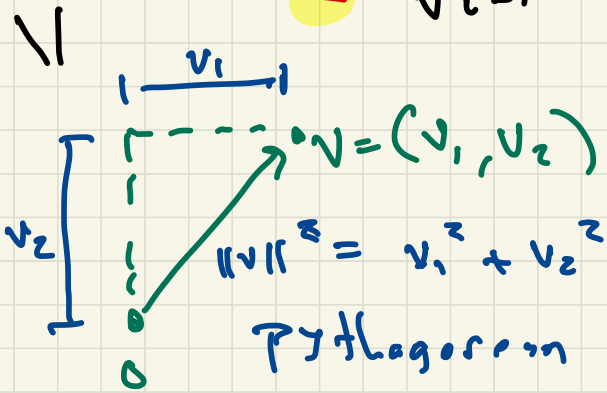 V
v₁
v = (v₁, v₂)
v₂
||v||² = v₁² + v₂²
Pythagorean
0